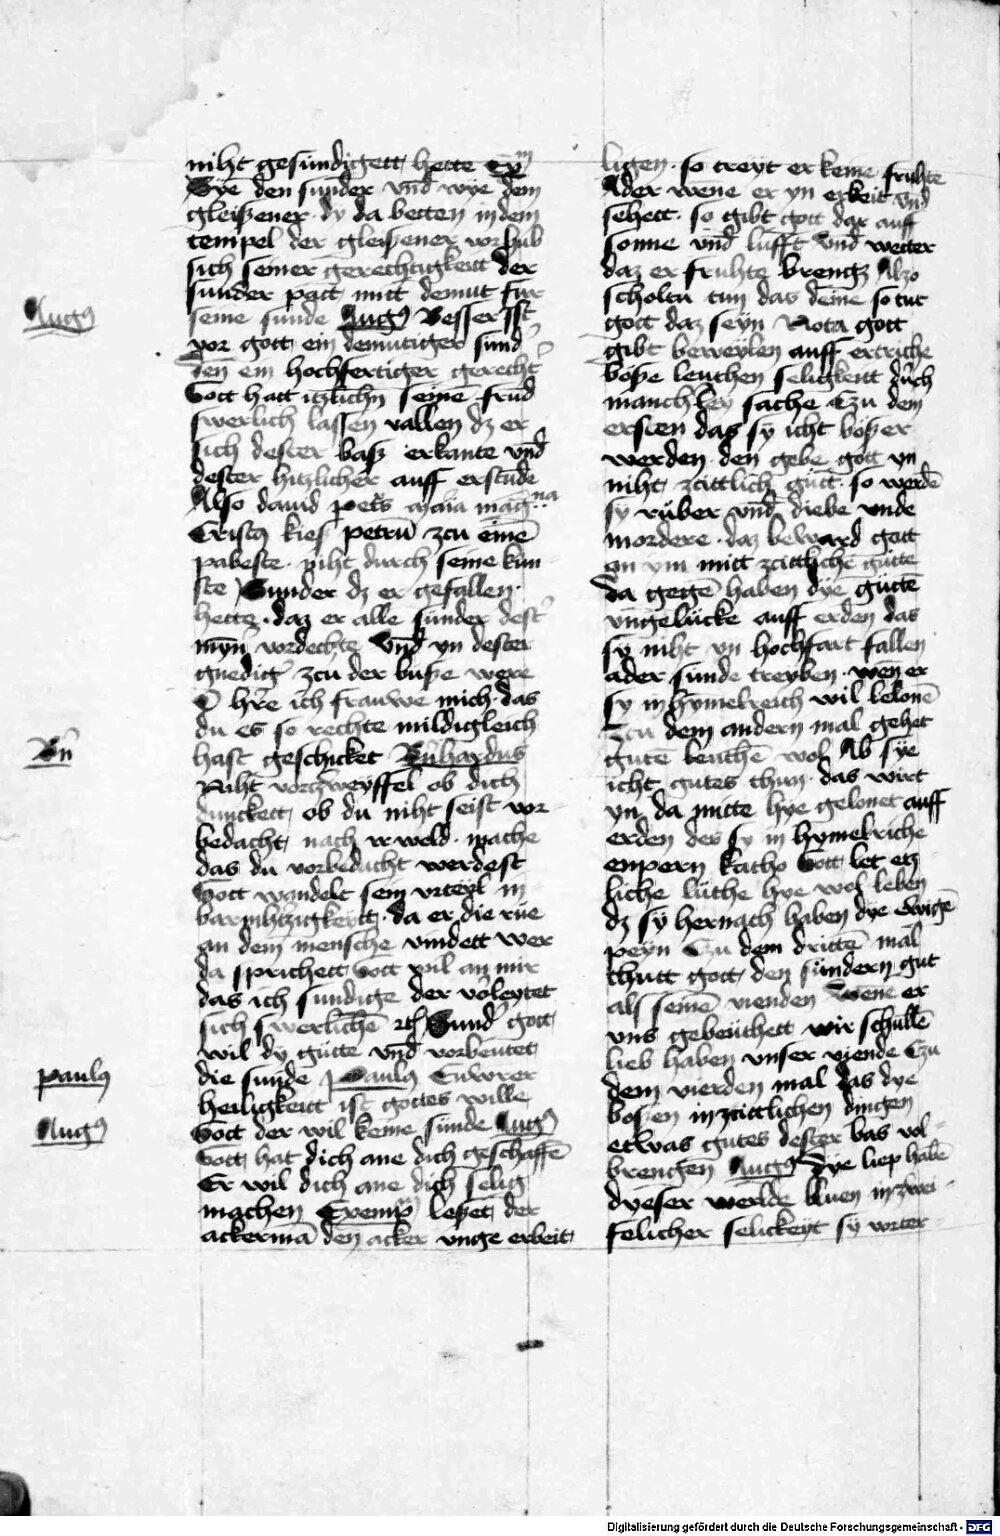 niht gesundigett hette Exm
Sye den sunder vnd wye dem
gleißener dy da betten in dem
tempel der gleißener vorhub
sich seiner gerechtigkeit der
sunder patt mitt demut fur
Augꝰ
seine sunde Augꝰ Besser ist
vor gott ein demutiger sund'
den ein hochfertiger gerecht'
Gott hatt itzlichn seinē frūd
swerlich lassen vallen dz er
sich dester baß erkante vnd
dester hitzlicher auff erstūde
Also dauid petꝰ maīa mag:na
Cristꝰ kieß petrū zcu einē
pabeste niht durch seine kun
ste Sunder dz er gefallen
hette daz er alle sunder dest'
myn vordechte Vnd yn dester
gnedig' zcu der buße were
O hre ich frauwe mich das
du es so rechte mildigleich
Bn̄
hast geschicket Bn̄hardus
Niht vorczweyffel ob dich
dunckett ob du niht seist vor
bedacht nach vrweld mache
das du vorbedacht werdest
Gott wandelt sein vrteyl in
barmhtzigkeytt da er die rue
an dem mensche vindett wer
da sprichett Gott wil an mir
das ich sundige der vorleytet
sich swerlichē Sund' gott
wil dy gutte vnd vorbeutet
Paulꝰ
die sunde Paulꝰ Euwrer
heiligkeitt ist gottes wille
Augꝰ
Gott der wil keine sunde Augꝰ
Gott hat dich ane dich geschaffē
Er wil dich ane dich selig
machen Exemp̄m leßet der
ackermā den acker vnge erbeit
ligen so treyt er keine fruhte
Ader wene er yn erbeit vnd
sehett so gibt gott dar auff
sonne vnd lufft vnd wetter
daz er fruhte brengz Alzo
scholtu tun das deine so tut
gott daz seyn Nota gott
gibt beweylen auff ertriche
boße leuthen selickeitt durch
manch'ley sache Czu dem
ersten das sy icht boßer
werden den gebe gott yn
niht zcittlich gutt so werdē
sy rüber vnd diebe vnde
mordere daz beward gott
an ym mitt zcittlichē gutte
da gegē haben dye gutē
vngelücke auff erden das
sy niht yn hochfart fallen
ader sunde treyben wen er
sy in hymelreich wil lelonē
Zcu dem andern mal gehet
gutē leuthē wol Ab sye
icht gutes thun das wirt
yn da mitte hye gelonet auff
erden des sy in hymelriche
enpern katho Gott let etz
liche lüthe hye wol leben
dz sy hernach haben dye ewigē
peyn Czu dem drittē mal
thutt gott den sündern gut
als seinē vienden Wene er
vns gebeuthett wir schullē
lieb haben vnser viende Czu
dem vierden mal das dye
boßen in zcittlichen dingen
etwas gutes dester bas vol
brengen Augꝰ Dye liep habē
dyeser werlde bluen in zwei
felicher selickeyt sy vorter
Digitalisierung gefördert durch die Deutsche Forschungsgemeinschaft - DFG